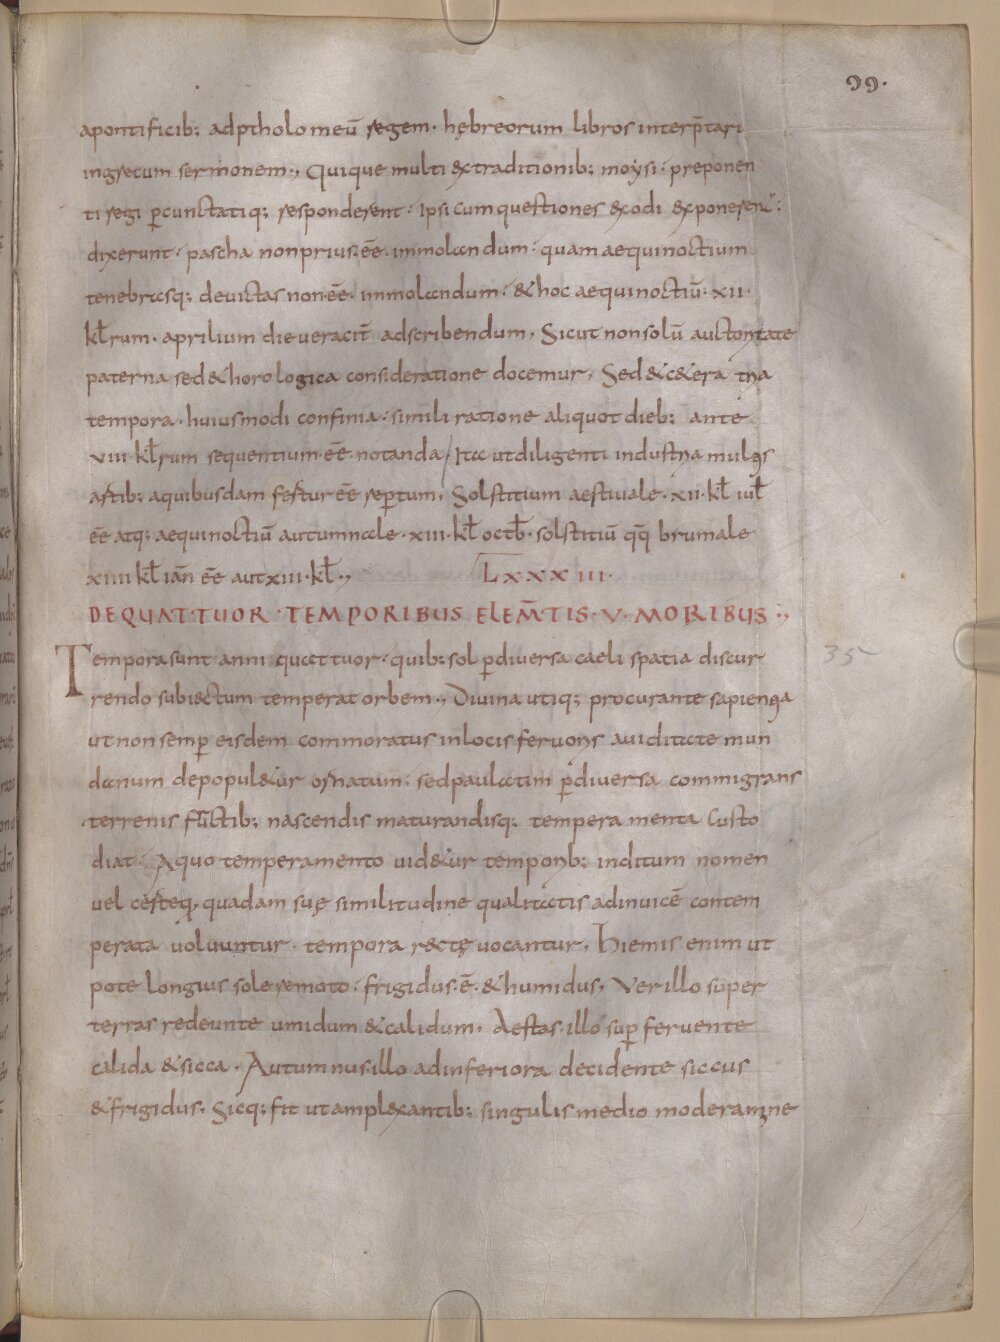 99.
apontificib; adptholomeū regem· hębreorum libros interp̄tari
ingrecum sermonem·, Quique multi &traditionib; moysi· preponen
ti regi ꝑcunctatiq; responderent· Ipsi cum questiones exodi exponerent:
dixerunt· pascha nonprius·eē· immolandum· quam aequinoctium
tenebrasq; deuictas non·eē· immolandum· &hoc aequinoctiū· xii·
kl̄rum· aprilium die veracit̄ adscribendum, Sicut nonsolū auctoritate
paterna sed&horologica consideratione docemur, Sed&c&era tria
tempora· huiusmodi confinia· simili ratione aliquot dieb; ante
viii·kl̄rum sequentium·eē· notanda/ Ita utdiligenti industria multis
artib; aquibusdam fertur eē reꝑtum, Solstitium aestiuale· xii· kl̄ iul̄
eē atq; aequinoctiū autumnale· xiii· kl̄ octb̄· solstitiū qq̄ brumale
xiiii kl̄ ian̄ eē autxiii·kl̄·,
Lxxxiii·
DEQUATTUOR·TEMPORIBUS ELEM̄TIS·V·MORIBUS·,
Tempora sunt anni quattuor· quib; sol ꝑdiversa caeli spatia discur
rendo subiectum temperat orbem·, Divina utiq; procurante sapientia
ut non semꝑ eisdem commoratus inlocis fervoris auiditate mun
danum depopul&ur ornatum: sedpaulatim ꝑdiversa commigrans
terrenis fructib; nascendis maturandisq; temperamenta custo
diat· Aquo temperamento uid&ur temporib; inditum nomen
uel certeq· quadam suę similitudine qualitatis adinuicē contem
perata voluuntur· tempora rectę vocantur, Hiemis enim ut
pote longius sole remoto· frigidus·ē· &humidus, Ver illo super
terras redeunte umidum &calidum, Aestas·illo suꝑ fervente
calida &sicca· Autumnus·illo adinferiora decidente siccus
&frigidus, Sicq; fit utamplexantib; singulis medio moderamine
35